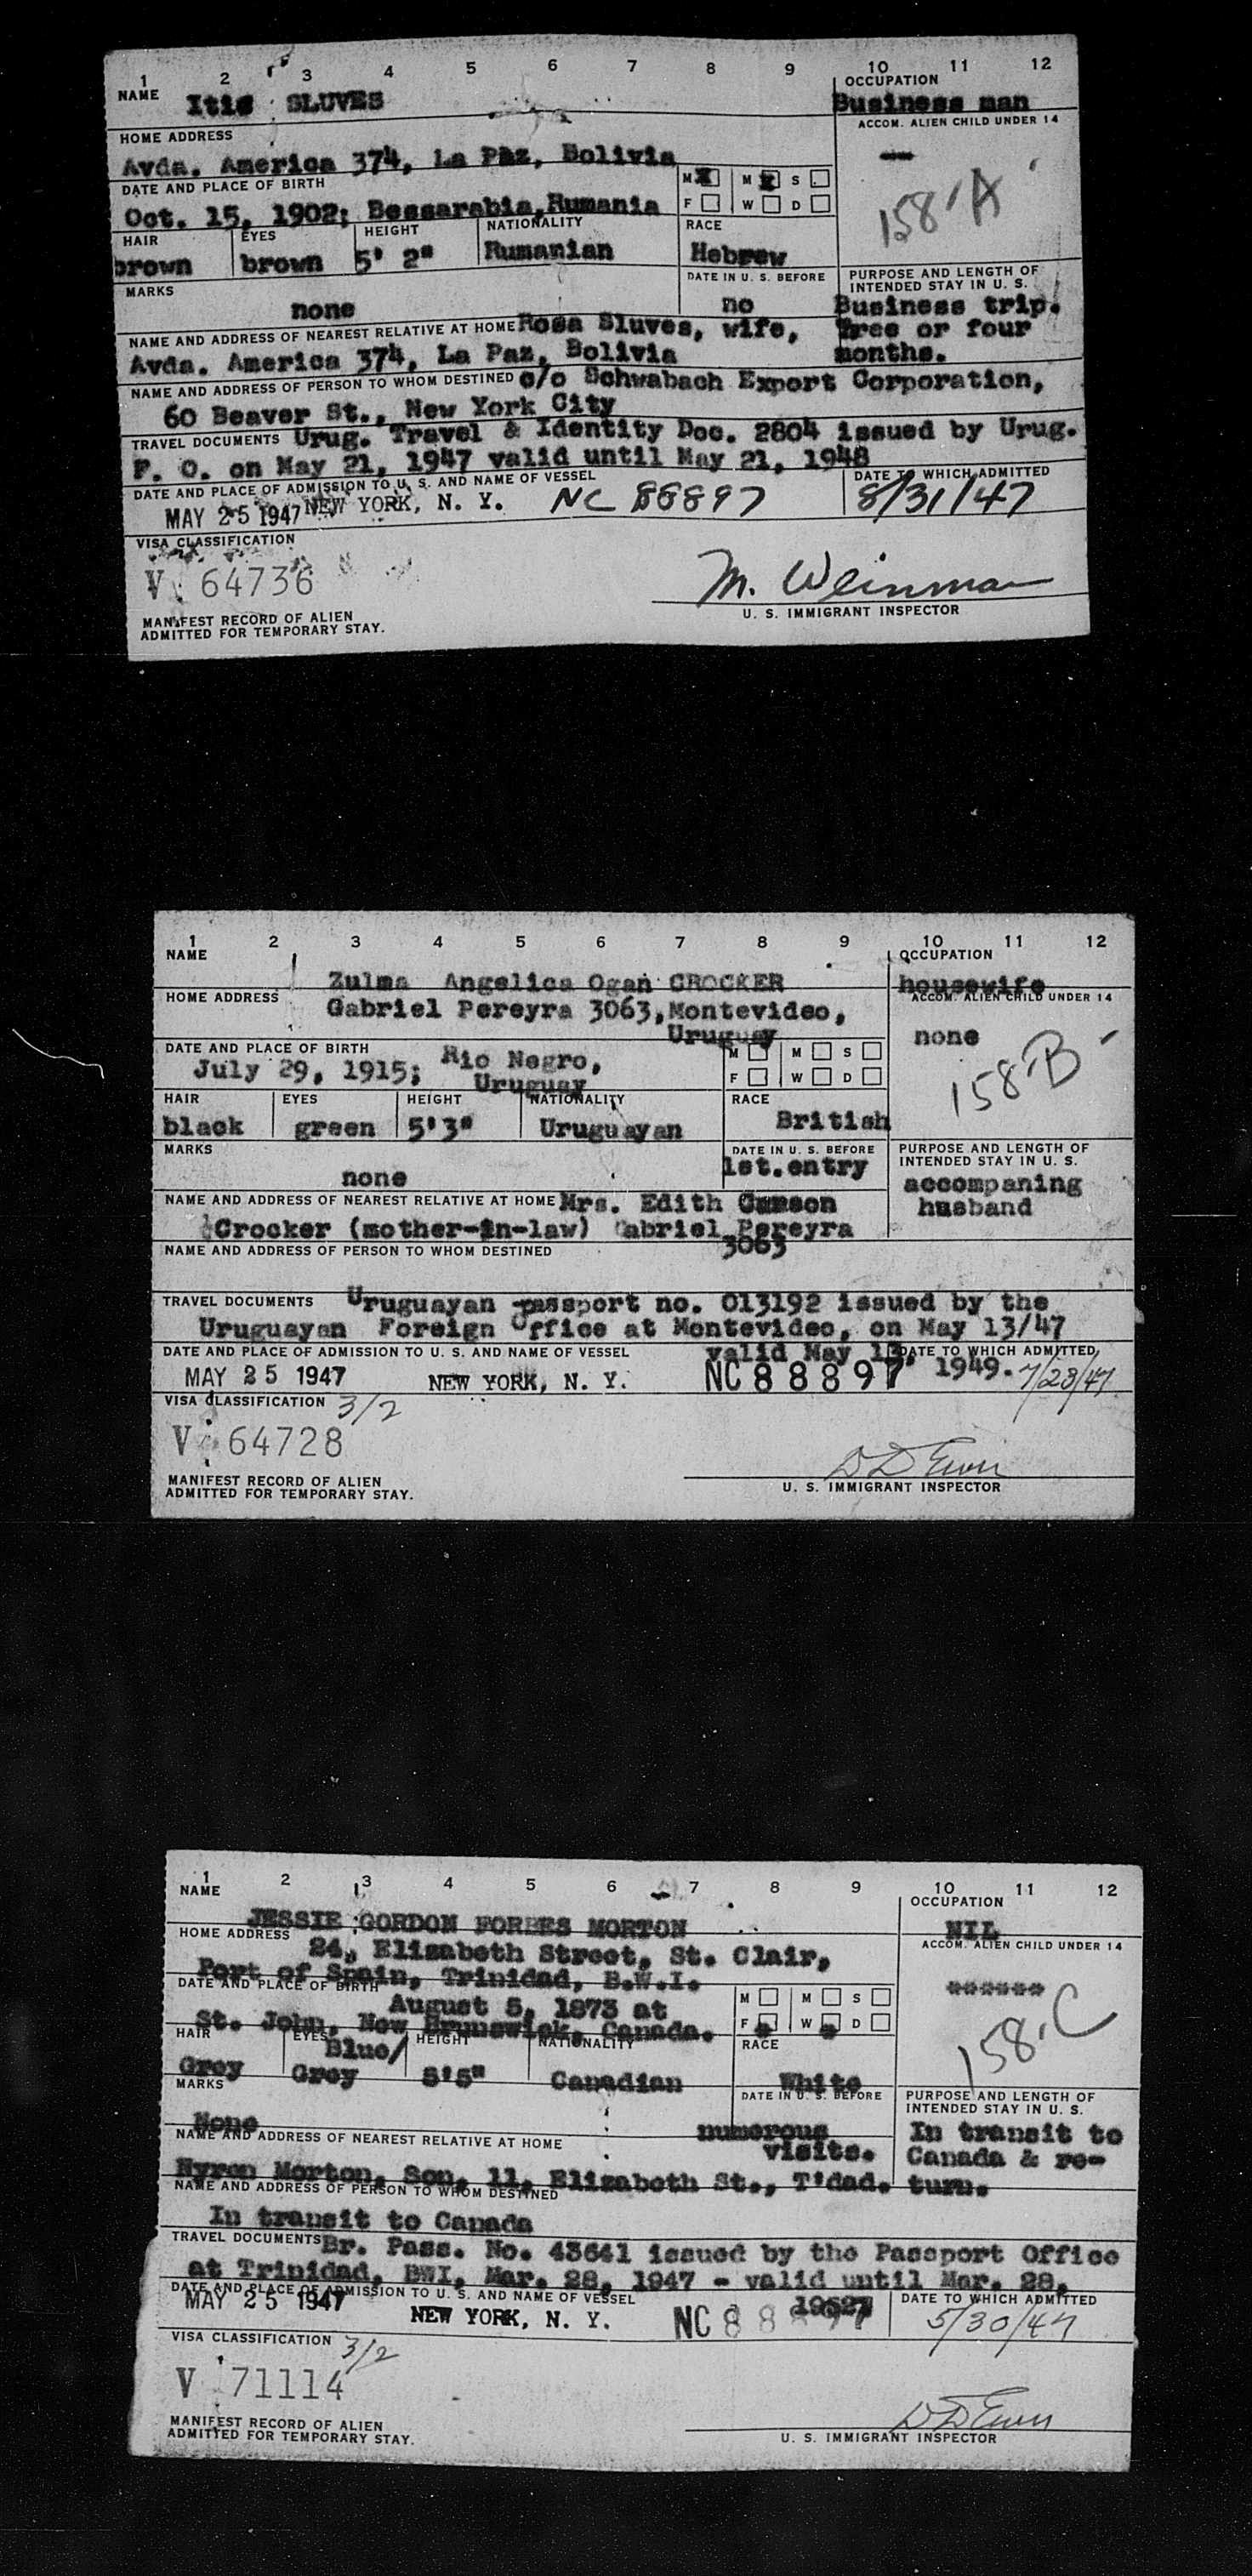 1 2 3 4 5 6 7 8 9 10 11 12
NAME Itis SLUVES
OCCUPATION
Business man
HOME ADDRESS
Avda. America 374, La Paz, Bolivia
ACCOM. ALIEN CHILD UNDER 14
158'A
DATE AND PLACE OF BIRTH
Oct. 15, 1902; Bessarabia, Rumania
M M S
F W D
HAIR EYES HEIGHT NATIONALITY RACE
brown brown 5' 2" Rumanian Hebrew
MARKS
none
DATE IN U. S. BEFORE
no
PURPOSE AND LENGTH OF
INTENDED STAY IN U. S.
Business trip.
Tree or four
months.
NAME AND ADDRESS OF NEAREST RELATIVE AT HOME Rosa Sluves, wife,
Avda. America 374, La Paz, Bolivia
NAME AND ADDRESS OF PERSON TO WHOM DESTINED c/o Schwabach Export Corporation,
60 Beaver St., New York City
TRAVEL DOCUMENTS Urug. Travel & Identity Doc. 2804 issued by Urug.
F. O. on May 21, 1947 valid until May 21, 1948
DATE AND PLACE OF ADMISSION TO U. S. AND NAME OF VESSEL DATE TO WHICH ADMITTED
MAY 25 1947 NEW YORK, N. Y. NC 88897 8/31/47
VISA CLASSIFICATION
V 64736
M. Weinman
MANIFEST RECORD OF ALIEN
ADMITTED FOR TEMPORARY STAY.
U. S. IMMIGRANT INSPECTOR
1 2 3 4 5 6 7 8 9 10 11 12
NAME OCCUPATION
Zulma Angelica Ogan CROCKER housewife
HOME ADDRESS Gabriel Pereyra 3063, Montevideo,
Uruguay
ACCOM. ALIEN CHILD UNDER 14
none
158'B
DATE AND PLACE OF BIRTH
July 29, 1915; Rio Negro,
Uruguay
M M S
F W D
HAIR EYES HEIGHT NATIONALITY RACE
black green 5'3" Uruguayan British
MARKS
none
DATE IN U. S. BEFORE
1st.entry
PURPOSE AND LENGTH OF
INTENDED STAY IN U. S.
accompaning
husband
NAME AND ADDRESS OF NEAREST RELATIVE AT HOME Mrs. Edith
Crocker (mother-in-law) Gabriel Pereyra
3063
NAME AND ADDRESS OF PERSON TO WHOM DESTINED
TRAVEL DOCUMENTS Uruguayan passport no. 013192 issued by the
Uruguayan Foreign Office at Montevideo, on May 13/47
valid May 13, 1949.
DATE AND PLACE OF ADMISSION TO U. S. AND NAME OF VESSEL DATE TO WHICH ADMITTED
MAY 25 1947 NEW YORK, N. Y. NC 88897 7/23/47
VISA CLASSIFICATION 3/2
V 64728
MANIFEST RECORD OF ALIEN
ADMITTED FOR TEMPORARY STAY.
U. S. IMMIGRANT INSPECTOR
1 2 3 4 5 6 7 8 9 10 11 12
NAME OCCUPATION
JESSIE GORDON FORBES MORTON NIL
HOME ADDRESS 24, Elizabeth Street, St. Clair,
Port of Spain, Trinidad, B.W.I.
ACCOM. ALIEN CHILD UNDER 14
******
158'C
DATE AND PLACE OF BIRTH
August 5, 1873 at
St. John, New Brunswick, Canada.
M M S
F W D
HAIR EYES HEIGHT NATIONALITY RACE
Grey Blue/
Grey 5'5" Canadian White
MARKS
None
DATE IN U. S. BEFORE
numerous
visits.
PURPOSE AND LENGTH OF
INTENDED STAY IN U. S.
In transit to
Canada & re-
turn.
NAME AND ADDRESS OF NEAREST RELATIVE AT HOME
Myron Morton, Son, 11, Elizabeth St., T'dad.
NAME AND ADDRESS OF PERSON TO WHOM DESTINED
In transit to Canada
TRAVEL DOCUMENTS Br. Pass. No. 43641 issued by the Passport Office
at Trinidad, BWI, Mar. 28, 1947 - valid until Mar. 28,
DATE AND PLACE OF ADMISSION TO U. S. AND NAME OF VESSEL DATE TO WHICH ADMITTED
MAY 25 1947 NEW YORK, N. Y. NC 88897 5/30/47
VISA CLASSIFICATION 3/2
V 71114
MANIFEST RECORD OF ALIEN
ADMITTED FOR TEMPORARY STAY.
U. S. IMMIGRANT INSPECTOR